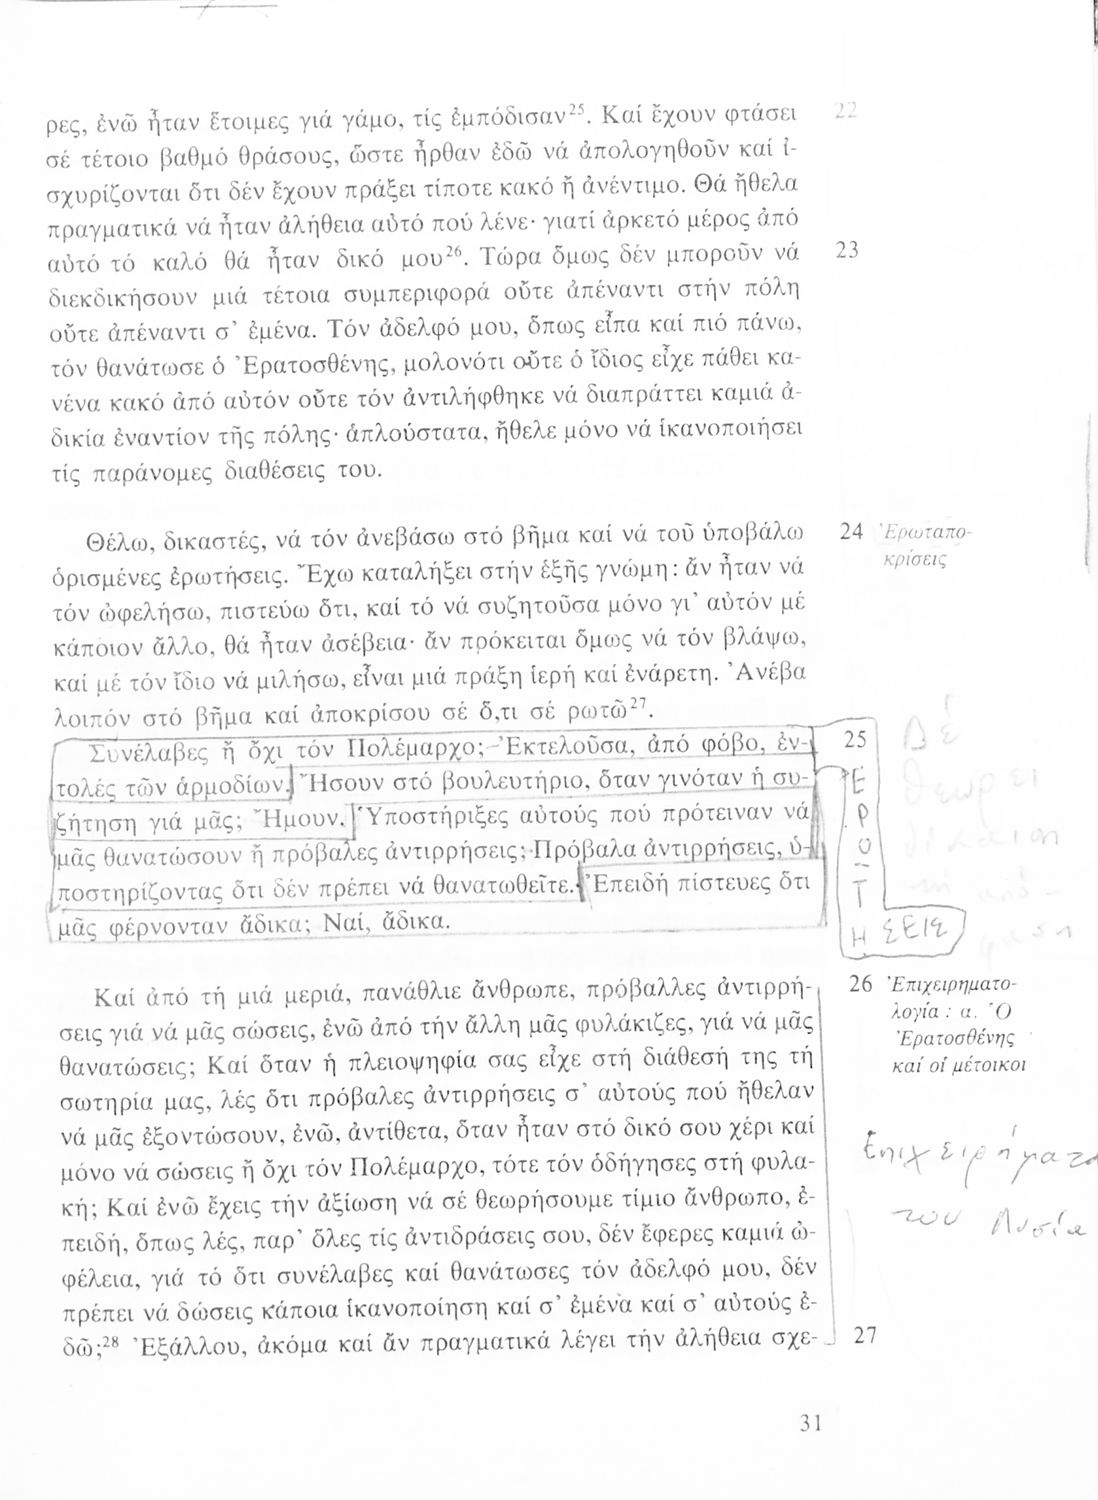 ρες, ἐνῶ ἦταν ἕτοιμες γιά γάμο, τίς ἐμπόδισαν²⁵. Καί ἔχουν φτάσει 22
σέ τέτοιο βαθμό θράσους, ὥστε ἦρθαν ἐδῶ νά ἀπολογηθοῦν καί ἰ-
σχυρίζονται ὅτι δέν ἔχουν πράξει τίποτε κακό ἤ ἀνέντιμο. Θά ἤθελα
πραγματικά νά ἦταν ἀλήθεια αὐτό πού λένε· γιατί ἀρκετό μέρος ἀπό
αὐτό τό καλό θά ἦταν δικό μου²⁶. Τώρα ὅμως δέν μποροῦν νά 23
διεκδικήσουν μιά τέτοια συμπεριφορά οὔτε ἀπέναντι στήν πόλη
οὔτε ἀπέναντι σ᾽ ἐμένα. Τόν ἀδελφό μου, ὅπως εἶπα καί πιό πάνω,
τόν θανάτωσε ὁ Ἐρατοσθένης, μολονότι οὔτε ὁ ἴδιος εἶχε πάθει κα-
νένα κακό ἀπό αὐτόν οὔτε τόν ἀντιλήφθηκε νά διαπράττει καμιά ἀ-
δικία ἐναντίον τῆς πόλης· ἁπλούστατα, ἤθελε μόνο νά ἱκανοποιήσει
τίς παράνομες διαθέσεις του.
Θέλω, δικαστές, νά τόν ἀνεβάσω στό βῆμα καί νά τοῦ ὑποβάλω 24 Ἐρωταπο-
ὁρισμένες ἐρωτήσεις. Ἔχω καταλήξει στήν ἑξῆς γνώμη: ἄν ἦταν νά κρίσεις
τόν ὠφελήσω, πιστεύω ὅτι, καί τό νά συζητοῦσα μόνο γι᾽ αὐτόν μέ
κάποιον ἄλλο, θά ἦταν ἀσέβεια· ἄν πρόκειται ὅμως νά τόν βλάψω,
καί μέ τόν ἴδιο νά μιλήσω, εἶναι μιά πράξη ἱερή καί ἐνάρετη. Ἀνέβα
λοιπόν στό βῆμα καί ἀποκρίσου σέ ὅ,τι σέ ρωτῶ²⁷.
Συνέλαβες ἤ ὄχι τόν Πολέμαρχο;-Ἐκτελοῦσα, ἀπό φόβο, ἐν- 25
τολές τῶν ἁρμοδίων. Ἤσουν στό βουλευτήριο, ὅταν γινόταν ἡ συ-
ζήτηση γιά μᾶς; Ἤμουν. Ὑποστήριξες αὐτούς πού πρότειναν νά
μᾶς θανατώσουν ἤ πρόβαλες ἀντιρρήσεις;-Πρόβαλα ἀντιρρήσεις, ὑ-
ποστηρίζοντας ὅτι δέν πρέπει νά θανατωθεῖτε. Ἐπειδή πίστευες ὅτι
μᾶς φέρνονταν ἄδικα; Ναί, ἄδικα.
ΕΡΩΤΗΣΕΙΣ
Καί ἀπό τή μιά μεριά, πανάθλιε ἄνθρωπε, πρόβαλλες ἀντιρρή- 26 Ἐπιχειρηματο-
σεις γιά νά μᾶς σώσεις, ἐνῶ ἀπό τήν ἄλλη μᾶς φυλάκιζες, γιά νά μᾶς λογία: α. Ὁ
θανατώσεις; Καί ὅταν ἡ πλειοψηφία σας εἶχε στή διάθεσή της τή Ἐρατοσθένης
σωτηρία μας, λές ὅτι πρόβαλες ἀντιρρήσεις σ᾽ αὐτούς πού ἤθελαν καί οἱ μέτοικοι
νά μᾶς ἐξοντώσουν, ἐνῶ, ἀντίθετα, ὅταν ἦταν στό δικό σου χέρι καί
μόνο νά σώσεις ἤ ὄχι τόν Πολέμαρχο, τότε τόν ὁδήγησες στή φυλα- Επιχειρήματα
κή; Καί ἐνῶ ἔχεις τήν ἀξίωση νά σέ θεωρήσουμε τίμιο ἄνθρωπο, ἐ- του Λυσία
πειδή, ὅπως λές, παρ᾽ ὅλες τίς ἀντιδράσεις σου, δέν ἔφερες καμιά ὠ-
φέλεια, γιά τό ὅτι συνέλαβες καί θανάτωσες τόν ἀδελφό μου, δέν
πρέπει νά δώσεις κάποια ἱκανοποίηση καί σ᾽ ἐμένα καί σ᾽ αὐτούς ἐ-
δῶ;²⁸ Ἐξάλλου, ἀκόμα καί ἄν πραγματικά λέγει τήν ἀλήθεια σχε- 27
31